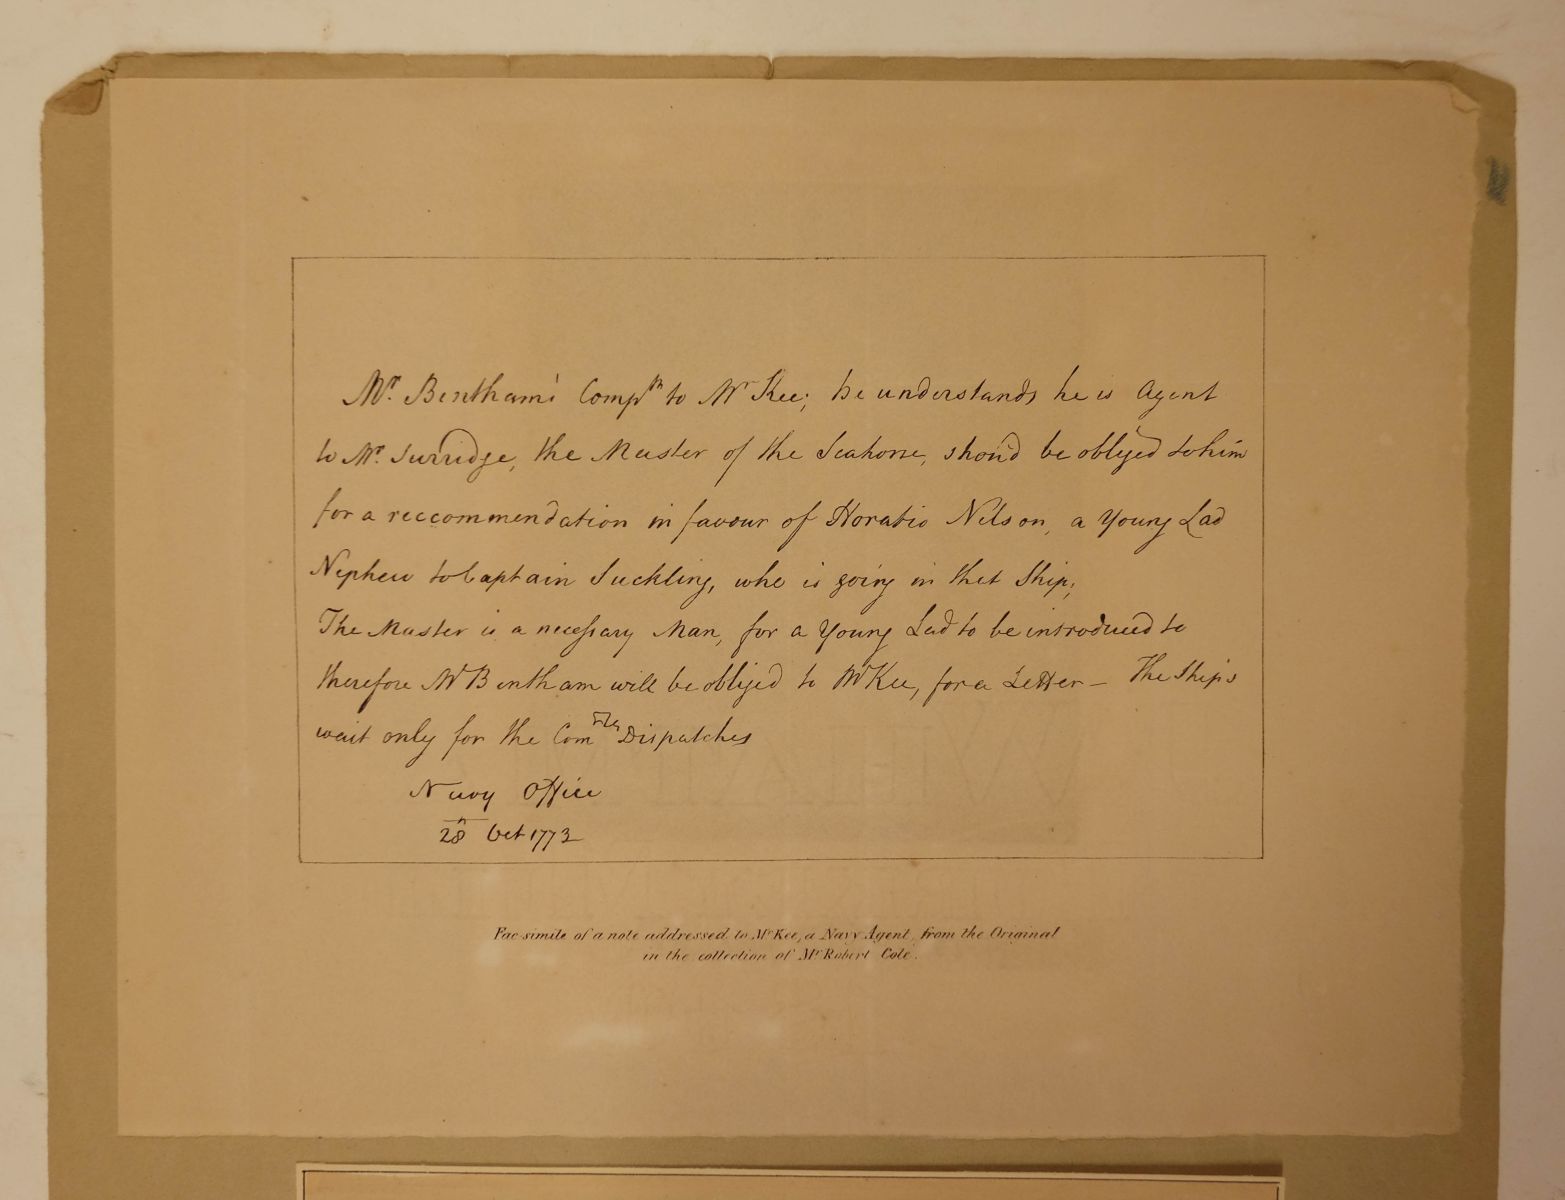 Mr. Bentham's Compts to Mr Kee; he understands he is Agent
to Mr. Surridge, the Master of the Seahorse, shou'd be obliged to him
for a reccommendation in favour of Horatio Nelson, a Young Lad
Nephew to Captain Suckling, who is going in that Ship;
The Master is a necessary Man, for a Young Lad to be introduced to
therefore Mr Bentham will be obliged to Mr Kee, for a Letter — The Ships
wait only for the Com Dispatches
Navy Office
28 Oct 1773
Fac-simile of a note addressed to Mr Kee, a Navy Agent, from the Original
in the collection of Mr Robert Cole.